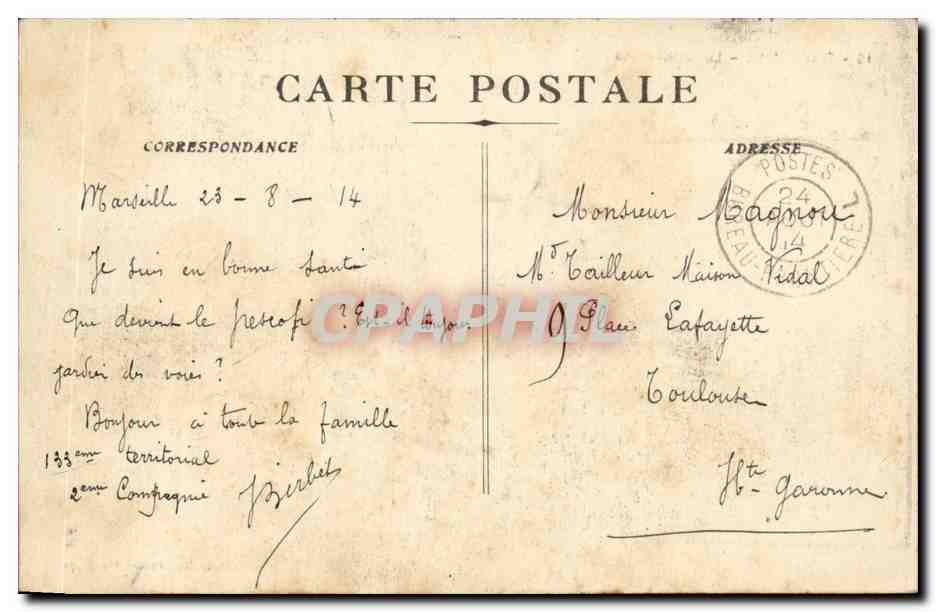 CARTE POSTALE
CORRESPONDANCE
ADRESSE
Marseille 23 - 8 - 14
Je suis en bonne santé
Que devient le ? Est-il toujours
gardien des voies ?
Bonjour à toute la famille
133eme territorial
2eme Compagnie
Monsieur Magnou
Md Tailleur Maison Vidal
9 Place Lafayette
Toulouse
Hte Garonne
POSTES
24
14
CPAPHIL